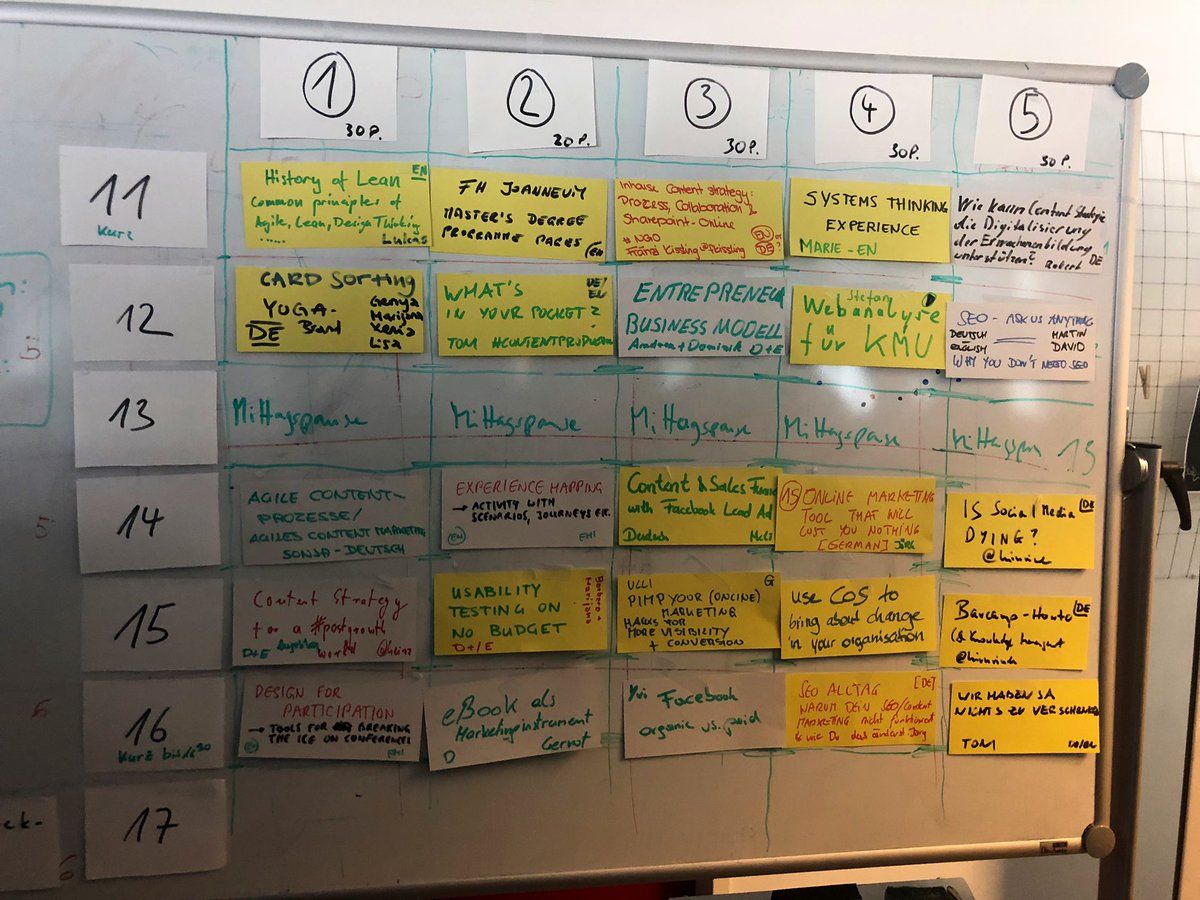 1
30P.
2
20P.
3
30P.
4
30P.
5
30P.
11
kurz
History of Lean EN
Common principles of
Agile, Lean, Design Thinking
......
Lukas
FH JOANNEUM
MASTER'S DEGREE
PROGRAMME
Inhouse Content strategy:
Prozess, Collaboration &
Sharepoint-Online
# NGO
EN or
DE?
SYSTEMS THINKING
EXPERIENCE
MARIE - EN
Wie kann Content Strategie
die Digitalisierung
der Erwachsenenbildung
unterstützen?
Robert DE
12
CARD SORTING
YOGA-
DE
Genya
Marijana
Xenia
Lisa
WHAT'S DE/
EN
IN YOUR POCKET?
TOM #CONTENTPRODUCTION
ENTREPRENEUR
BUSINESS MODELL
Andrea + Dominik D+E
Stefan
Webanalyse
für KMU
SEO - ASK US ANYTHING
DEUTSCH MARTIN
ENGLISH DAVID
WHY YOU DON'T NEED SEO
13
Mittagspause
Mittagspause
Mittagspause
Mittagspause
13
14
AGILE CONTENT-
PROZESSE/
AGILES CONTENT MARKETING
SONJA - DEUTSCH
EXPERIENCE MAPPING
→ ACTIVITY WITH
SCENARIOS, JOURNEYS
EN
Content & Sales Funnel
with Facebook Lead Ad
Deutsch
15 ONLINE MARKETING
TOOL THAT WILL
COST YOU NOTHING
[GERMAN] JÖRG
IS Social Media DE
DYING?
15
Content Strategy
for a #postgrowth
D+E world @heinz
USABILITY
TESTING ON
NO BUDGET
D+/E
Barbara +
Marijana
ULLI G
PIMP YOUR (ONLINE)
MARKETING
HACKS FOR
MORE VISIBILITY
+ CONVERSION
USE COS to
bring about change
in your organisation
Barcamp-Howto DE
16
kurz bis 16 30
DESIGN FOR
PARTICIPATION
→ TOOLS FOR BREAKING
THE ICE ON CONFERENCES
eBook als
Marketinginstrument
Gernot
D
Yvi Facebook
organic vs. paid
SEO ALLTAG [DE]
WARUM DEIN SEO/Content
MARKETING nicht funktioniert
& wie Du das änderst Jörg
WIR HABEN JA
NICHTS ZU VERSCHENKEN
TOM
17
5
5
6
6